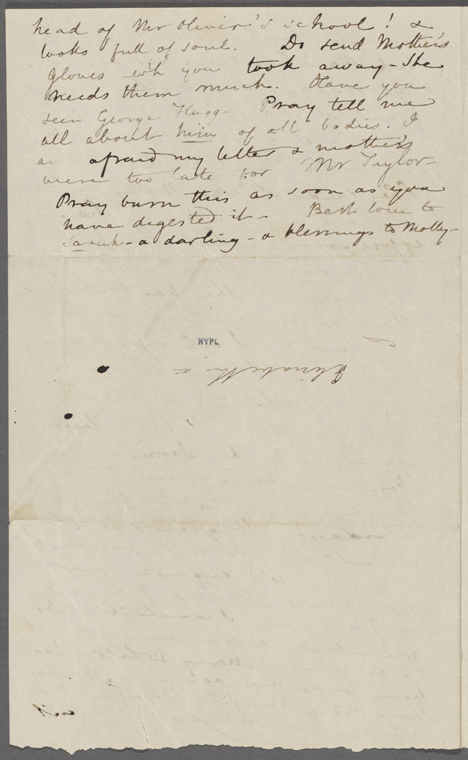 head of Mr Oliver's school! &
looks full of soul. Do send Mother's
gloves wh you took away - She
needs them much. Have you
seen George Flagg - Pray tell me
all about him of all bodies. I
am afraid my letter & mother's
were too late for Mr Taylor -
Pray burn this as soon as you
have digested it - Best love to
Sarah - a darling - & blessings to Molly -
NYPL
Elizabeth